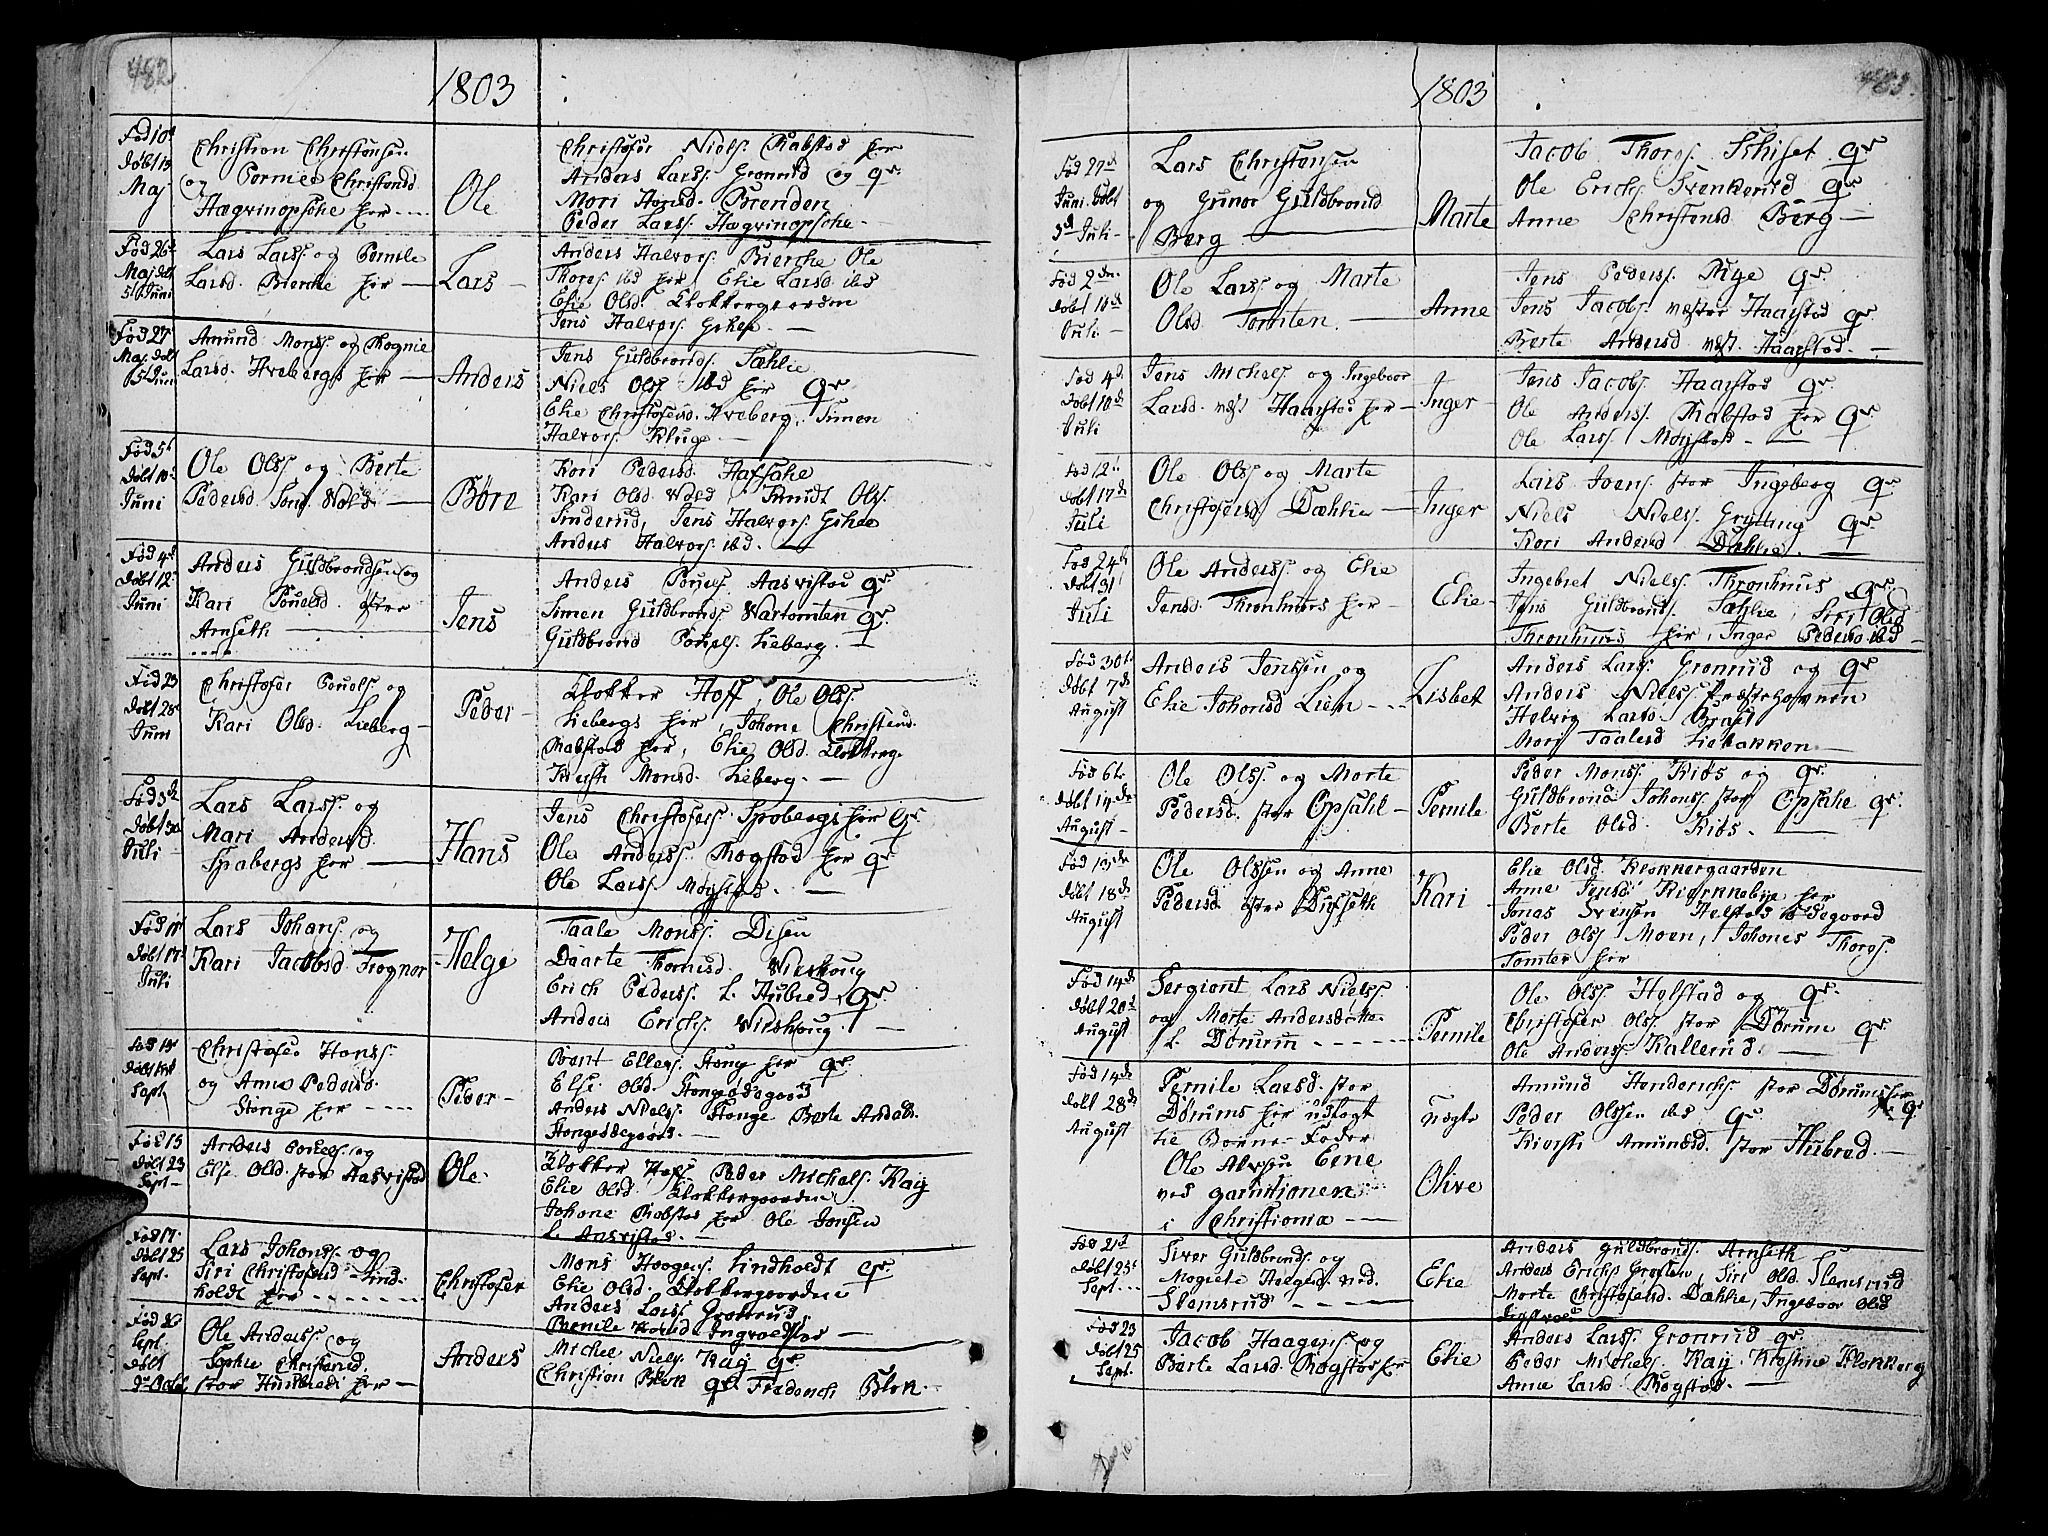 482
1803
Fød 10de
Døbt 19
Maj
Christian Christensen
og Pernill Christensd
Hægvinopsche her
Ole
Christofer Niels. Rabstad her
Anders Larss. Grønrud og gr.
Mari Brenden
Peder Larss. Hægvinopsche
Fød 26de
Maj døbt
5 Juni
Lars Larss. og Pernile
Larsd. Bierche her
Lars
Anders Halvors. Bierche Ole
Thores. ibd her Elie Larsd ibd
Elie Olsd. Klokkergaarden
Jens Halvors.
Fød 27
Maj. døbt
5 Juni
Amund Monss. og Rognie
Larsd. Hvebergs her
Anders
Jens Guldbrands. Sæhlie
Niels Ols. ibd her gr
Elie Christofersd. Hveberg. Simen
Halvors. Kluge
Fød 5t
Døbt 10d
Juni
Ole Olss og Berte
Pedersd. Wold
Børe
Kari Pedersd.
Kari Olsd. Wold Knudt Ols.
Sinderud, Jens Halvors.
Anders Halvors. ibd.
Fød 4d
Døbt 12
Juni
Anders Guldbrandsen og
Kari Pouelsd. østre
Arnseth
Jens
Anders Pouels. Aasvistad gr
Simen Guldbrands Wartomten gr.
Guldbrand Pouels. Lieberg.
Fød 23
Døbt 28
Juni
Christofer Pouels og
Kari Olsd. Lieberg
Peder
Klokker Hoff, Ole Ols.
Liebergs her, Johane Christensd
Rabstad her, Elie Olsd. Klokkerg.
Kiersti Monsd. Lieberg.
Fød 3de
Døbt 30
Juli
Lars Larss. og
Mari Andersd.
Spabergs her
Hans
Jens Christofers. Spobergs her gr
Ole Anderss. Rogstad her gr
Ole Larss. Møystad.
Fød 11
Døbt 17
Juli
Lars Johans. og
Kari Jacobsd. Frognor
Helge
Taale Monss. Disen
Daarte Thomisd. Wieskoug
Erich Pederss. L. Hubred gr.
Anders Erichs. Wieskoug.
Fød 14
Døbt
Sept.
Christofer Hanss.
og Anne Pedersd.
Stonge her
Peder
Brent Ellefs. Stong her gr
Else Olsd. Stongeødegaard
Anders Niels. Stonge Berte Andersd.
Stongeødegaard.
Fød 15
Døbt 23
Sept
Anders Pouels. og
Else Olsd. stor Aasvistad
Ole
Klokker Hoff Peder Michels. Kaÿ
Elie Olsd. Klokkergaarden
Johane Rabstad her Ole Jonsen
L. Aasvistad.
Fød 17
Døbt 25
Sept.
Lars Johanss. og
Siri Christofersd Lind-
holdt her
Christofer
Mons Haagens. Lindholdt gr.
Elie Olsd. Klokkergaarden
Anders Larss Grøtterud
Pernile Ingvoldstad
Fød
Sept.
Døbt
Ole Anderss. og
Sophie Christensd.
stor Hunbreds her
Anders
Michel Niels. Kaÿ gr
Christian Blok gr. Frederich Blok.
483.
1803
Fød 27de
Juni Døbt
3d Juli
Lars Christensen
og Gunor Guldbrandsd
Berg
Marte
Jacob Thores. Schiset gr
Ole Erichs. Svenkerud gr
Anne Christensd Berg
Fød 2den
Døbt 10d
Juli
Ole Larss og Marte
Olsd. Tomten.
Anne
Jens Pederss. Rye gr.
Jens Jacobs. mester Haarstad gr
Berte Andersd. mest. Haarstad.
Fød 4d
Døbt 10d
Juli
Jens Michels og Ingeboor
Larsd. mest Haarstad her
Inger
Jens Jacobs. Haarstad gr
Ole Anderss. Rabstad her gr
Ole Larss. Møystad
Fød 12t
Døbt 17d
Juli
Ole Olss og Marte
Christofersd Dæhlie
Inger
Lars Joens. stor Ingeberg gr
Niels Niels. Grytting gr
Kari Andersd Dæhlie.
Fød 24d
Døbt 31
Juli
Ole Anderss. og Elie
Jensd. Thronhuus her
Elie
Ingebret Nielss. Thronhuus gr
Jens Guldbrands. Sæhlie, Siri Olsd
Thronhuus her, Inger Pedersd ibd
Fød 30t
Døbt 7d
August
Anders Jenssen og
Elie Johansd Lien
Lisbet
Anders Larss. Grønrud og gr
Anders Niels Præstehovnen
Helvig Larsd.
Mari Taalesd Liebakken
Fød 6te
Døbt 14de
August
Ole Olss. og Marte
Pedersd. stor Opsahl
Pernile
Peder Monss. Kiøs og gr.
Guldbrand Johans. stor Opsahl gr.
Berte Olsd. Kiøs.
Fød 13de
Døbt 18d
August
Ole Olssen og Anne
Pedersd østre Dufseth
Kari
Elie Olsd. Klokkergaarden
Anne Jensd. Kiørnnebye her
Jonas Svensen Helstad ødegaard
Peder Olss Moen, Johanes Thores.
Tomter her
Fød 14d
Døbt 20d
August
Sergiant Lars Nielss.
og Marte Andersdatter
L. Dørum
Pernile
Ole Olss. Helstad og gr.
Christofer Olss. stor Dørum gr.
Ole Anderss Kallerud.
Fød 14de
Døbt 28de
August
Pernile Larsd. stor
Dørums her udlagt
til Barne-Fader
Ole Eene
ved garnitionen
i Christiania
uægte
Olive
Amund Henderichs. stor Dørums her gr
Peder Olssen ibd gr
Kiersti Amundsd. stor Hubred.
Fød 21d
Døbt 25t
Sept.
Siver Guldbrands. og
Magrete Haagensd.
Slemsrud
Elie
Anders Guldbrands. Arnseth
Anders Erichs Grosten, Siri Olsd. Slemsrud
Marte Christofersd. Dæhlie, Ingeboor Olsd
Fød 23
Døbt 25
Sept.
Jacob Haagens. og
Berte Larsd. Rogstad her
Elie
Anders Larss. Grønrud gr.
Peder Michels. Kaÿ. Kirstine Klokkerg
Anne Larsd. Rogstad.